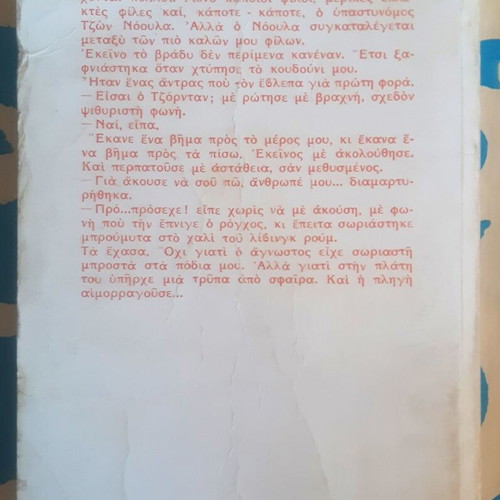 κτὲς φίλες καί, κάποτε - κάποτε, ὁ ὑπαστυνόμος
Τζὼν Νόουλα. Ἀλλὰ ὁ Νόουλα συγκαταλέγεται
μεταξὺ τῶν πιὸ καλῶν μου φίλων.
Ἐκεῖνο τὸ βράδυ δὲν περίμενα κανέναν. Ἔτσι ξα-
φνιάστηκα ὅταν χτύπησε τὸ κουδούνι μου.
Ἦταν ἕνας ἄντρας ποὺ τὸν ἔβλεπα γιὰ πρώτη φορά.
— Εἶσαι ὁ Τζόρνταν; μὲ ρώτησε μὲ βραχνή, σχεδὸν
ψιθυριστὴ φωνή.
— Ναί, εἶπα.
Ἔκανε ἕνα βῆμα πρὸς τὸ μέρος μου, κι ἔκανα ἕ-
να βῆμα πρὸς τὰ πίσω. Ἐκεῖνος μὲ ἀκολούθησε.
Καὶ περπατοῦσε μὲ ἀστάθεια, σὰν μεθυσμένος.
— Γιὰ ἄκουσε νὰ σοῦ πῶ, ἄνθρωπέ μου... διαμαρτυ-
ρήθηκα.
— Πρό...πρόσεχε! εἶπε χωρὶς νὰ μὲ ἀκούση, μὲ φω-
νὴ ποὺ τὴν ἔπνιγε ὁ ρόγχος, κι ἔπειτα σωριάστηκε
μπρούμυτα στὸ χαλὶ τοῦ λίβινγκ ρούμ.
Τὰ ἔχασα. Ὄχι γιατὶ ὁ ἄγνωστος εἶχε σωριαστῆ
μπροστὰ στὰ πόδια μου. Ἀλλὰ γιατὶ στὴν πλάτη
του ὑπῆρχε μιὰ τρύπα ἀπὸ σφαῖρα. Καὶ ἡ πληγὴ
αἱμορραγοῦσε...